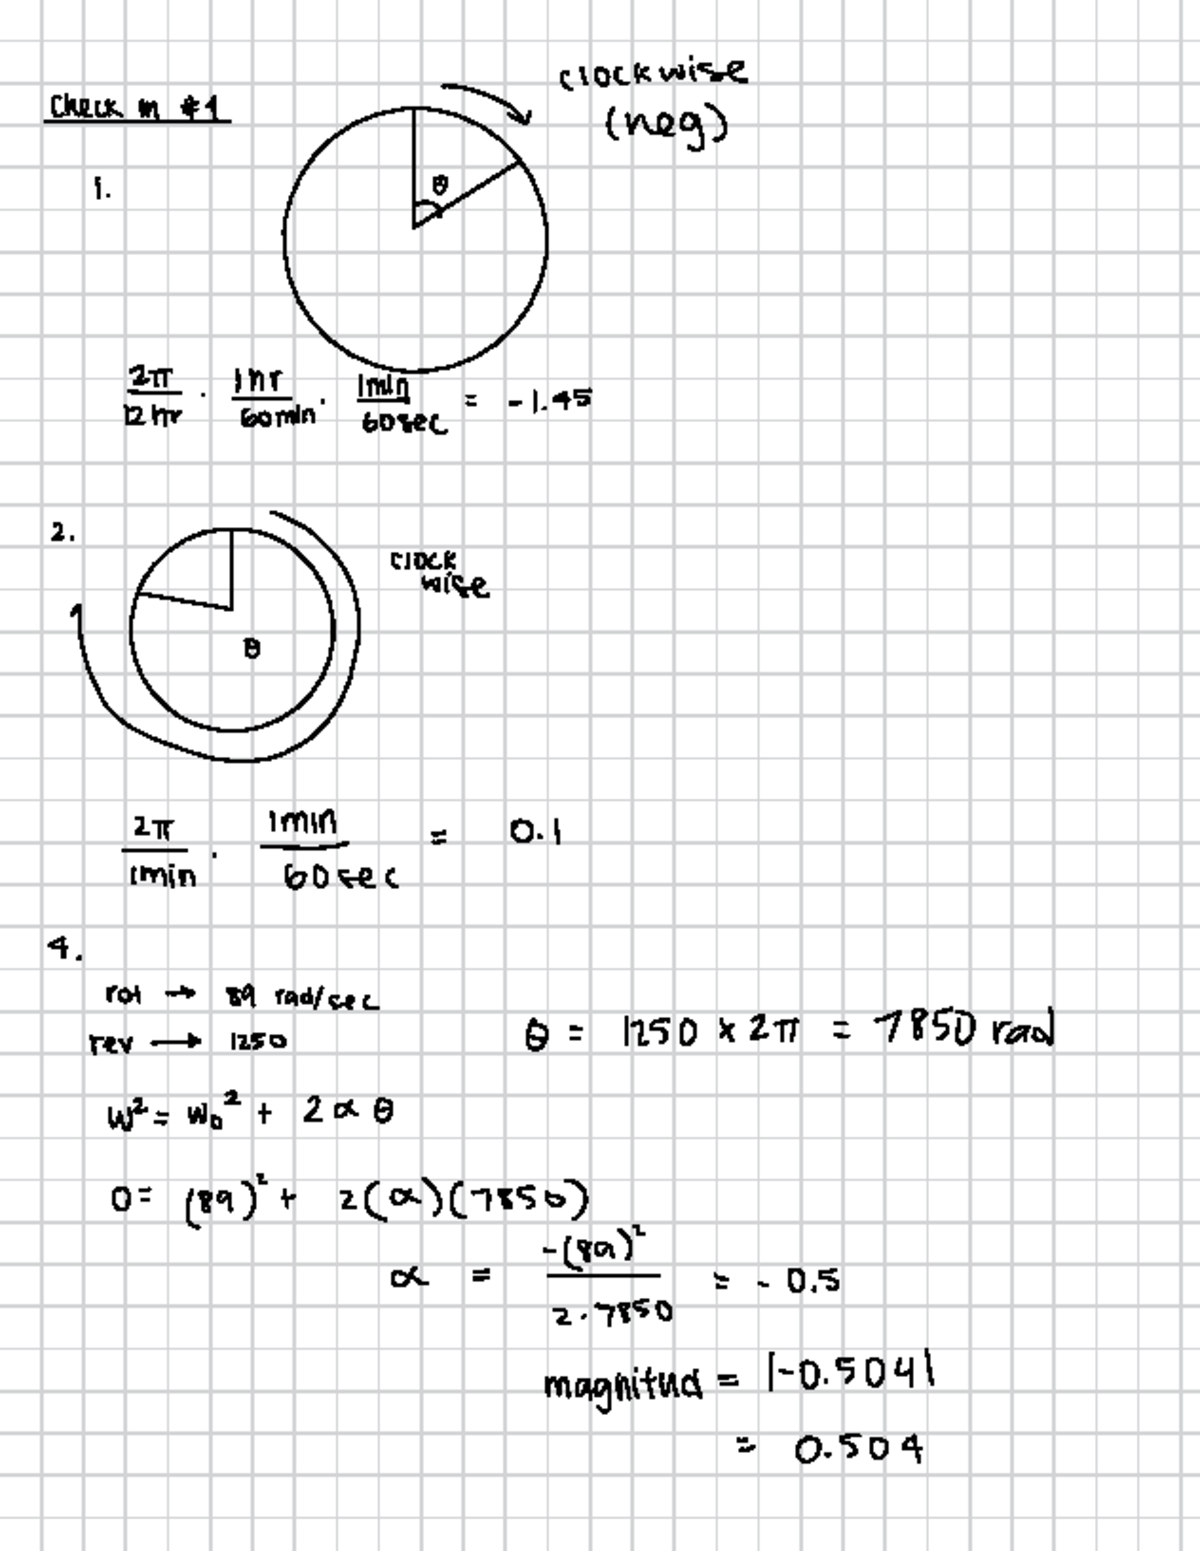 Check in #1
clockwise
(neg)
1.
θ
2π/12 hr · 1hr/60min · 1min/60sec = -1.45
2.
clock
wise
θ
2π/1min · 1min/60sec = 0.1
4.
rot → 89 rad/sec
rev → 1250
θ = 1250 × 2π = 7850 rad
w² = w₀² + 2 α θ
0 = (89)² + 2(α)(7850)
α = -(89)²/2·7850 = -0.5
magnitud = |-0.504|
= 0.504